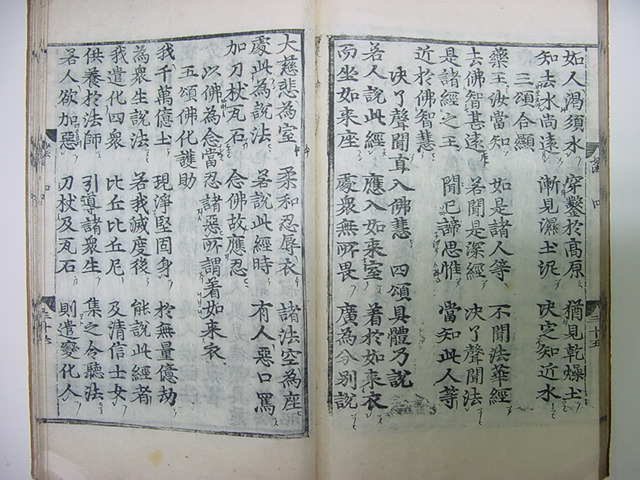 如人渴須水 穿鑿於高原 猶見乾燥土
知去水尚遠 漸見濕土泥 决定知近水
三頌合顯
藥王汝當知 如是諸人等 不聞法華經
去佛智甚遠 若聞是深經 决了聲聞法
是諸經之王 聞已諦思惟 當知此人等
近於佛智慧
决了聲聞直入佛慧 四頌具體乃說
若人說此經 應入如來室 着於如來衣
而坐如來座 處衆無所畏 廣為分別說
大慈悲為室 柔和忍辱衣 諸法空為座
處此為說法 若說此經時 有人惡口罵
加刀杖瓦石 念佛故應忍
以佛為念當忍諸惡所謂着如來衣
五頌佛化護助
我千萬億土 現淨堅固身 於無量億劫
為衆生說法 若我滅度後 能說此經者
我遣化四衆 比丘比丘尼 及清信士女
供養於法師 引導諸衆生 集之令聽法
若人欲加惡 刀杖及瓦石 則遣變化人